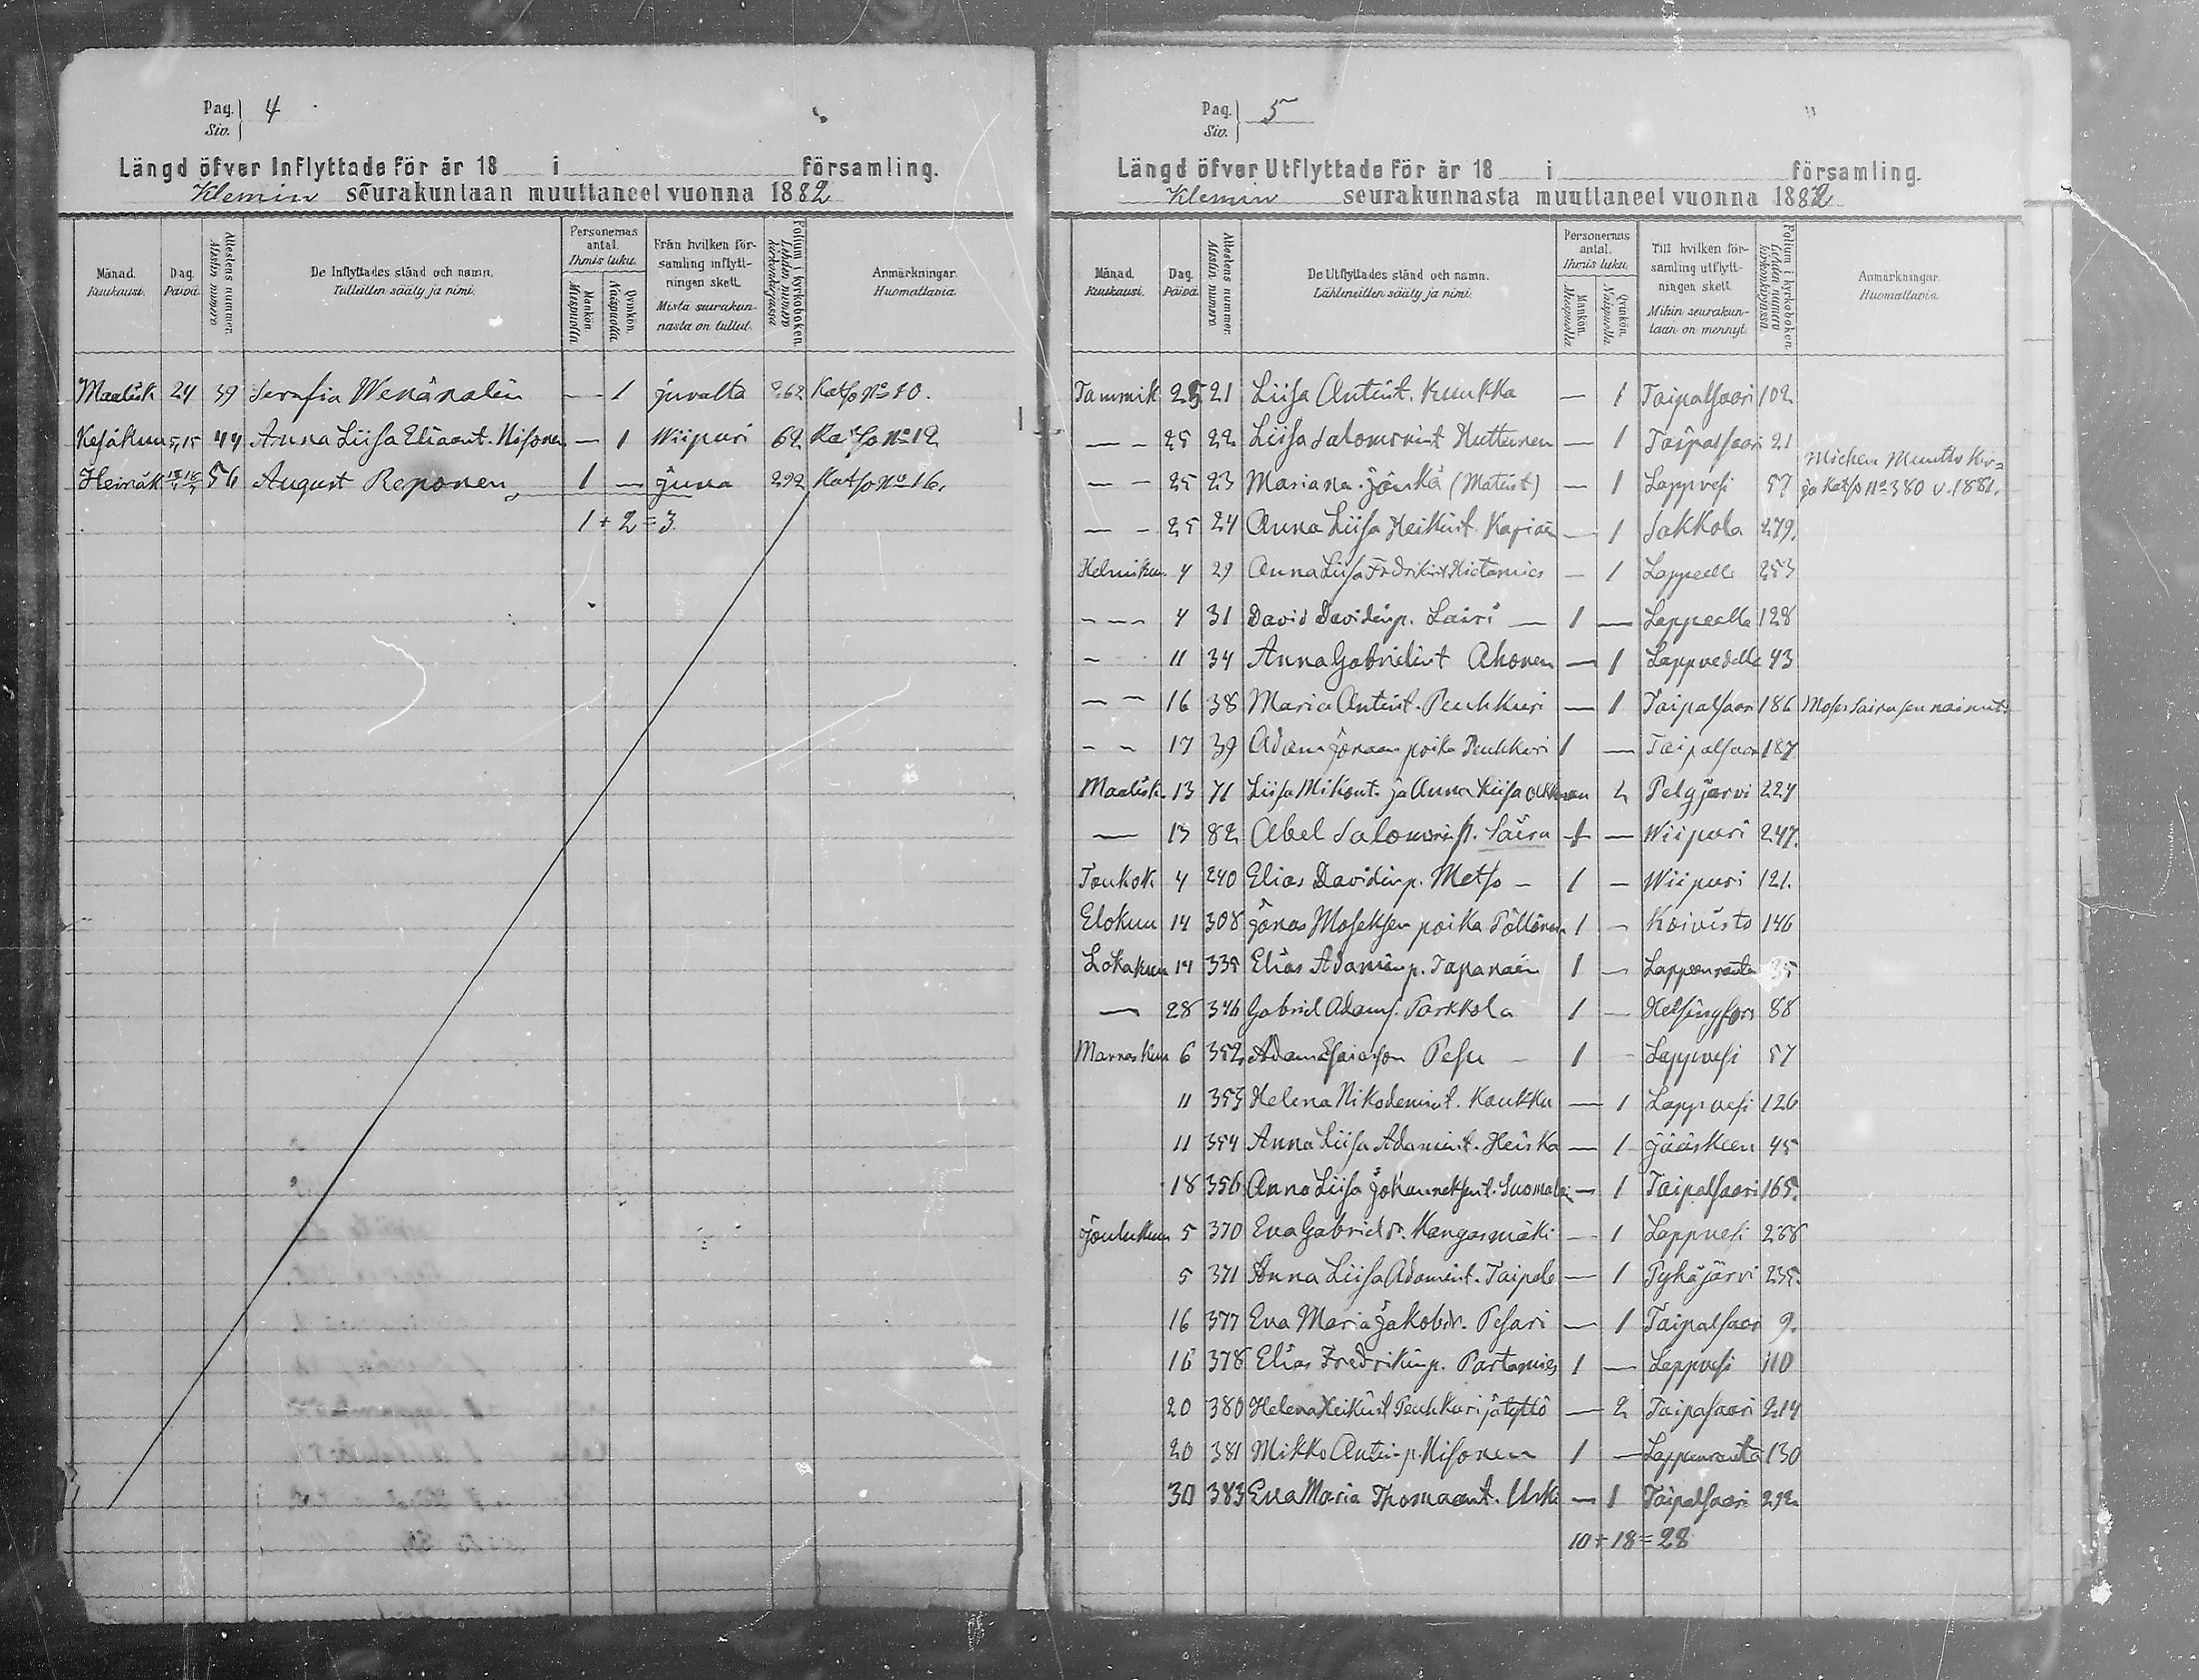 Pag. 4
Siv.
Längd öfver Inflyttade för år 18 i församling.
Klemin seurakuntaan muuttaneet vuonna 1882
Månad. Kuukausi.
Dag. Päivä
Attestens nummer. Alistin numero
De Inflyttades stånd och namn. Tulleitten sääty ja nimi.
Personernas antal. Ihmis luku.
Mankön. Miespuolta
Qvinkön. Naispuolta
Från hvilken församling inflyttningen skett. Mistä seurakunnasta on tullut.
Folium i kyrkoboken. Lehden numero kirkonkirjassa
Anmärkningar. Huomattavia.
Maalisk 24 39 Serafia Wenänalën — 1 Juvalta 262 Katso No 10.
Kesäkuu 5,15 44 Anna Liisa Eliaant. Nisonen — 1 Wiipuri 62 Katso No 12
Heinäk 56 August Reponen 1 — Juva 292 Katso No 16.
1 + 2 = 3
Pag. 5
Siv.
Längd öfver Utflyttade för år 18 i församling.
Klemin seurakunnasta muuttaneet vuonna 1882
Månad. Kuukausi.
Dag. Päivä
Attestens nummer. Alistin numero
De Utflyttades stånd och namn. Lähteneitten sääty ja nimi.
Personernas antal. Ihmis luku.
Mankön. Miespuolta
Qvinkön. Naispuolta
Till hvilken församling utflyttningen skett. Mihin seurakuntaan on mennyt.
Folium i kyrkoboken. Lehden numero kirkonkirjassa
Anmärkningar. Huomattavia.
Tammik 25 21 Liisa Antint. Kuukka — 1 Taipalsaari 102
— - 25 22 Liisa Salomonint Huttunen — 1 Taipalsaari 21
— - 25 23 Mariana Jönkä (Matint) — 1 Lappvesi 57 Michen Muutto Kirja Katso No 380 v. 1881.
— - 25 24 Anna Liisa Heikint. Kapiain — 1 Sakkola 279.
Helmikuu 4 29 Anna Liisa Fredrikint Hietamies — 1 Lappeelle 253
- - - 4 31 David Davidinp. Lairi — 1 — Lappeelle 128
- 11 34 Anna Gabrielint Ahonen — 1 Lappvedelle 43
- - 16 38 Maria Antint. Peuhkuri — 1 Taipalsaari 186 Moses Sairasen nainut.
- - 17 39 Adam Jonaan poika Peuhkuri 1 — Taipalsaari 187
Maalisk 13 71 Liisa Mikont. ja Anna Liisa Akkanen 2 Pelgjärvi 224
— 13 82 Abel Salomonin p. Saira 1 — Wiipuri 247.
Toukok 4 240 Elias Davidinp. Metso - 1 - Wiipuri 121.
Elokuu 14 308 Jonas Moseksen poika Pöllänen 1 - Koivisto 146
Lokakuu 14 335 Elias Adaminp. Tapanain 1 - Lappeenranta 35
— 28 346 Gabriel Adams. Parkkola 1 - Helsingfors 88
Marraskuu 6 352 Adam Esaiasson Pesu - 1 - Lappvesi 57
11 353 Helena Nikodemint. Kaukku — 1 Lappvesi 126
11 354 Anna Liisa Adamint. Heiska — 1 Jääskeen 45
18 356 Anna Liisa Johanneksent. Suomalai — 1 Taipalsaari 165.
Joulukuu 5 370 Eva Gabrielst. Kangasmäki - 1 Lappvesi 268
5 371 Anna Liisa Adamint. Taipale — 1 Pyhäjärvi 235.
16 377 Eva Maria Jakobdr. Pesari — 1 Taipalsaari 9.
16 378 Elias Fredrikinp. Partamies 1 — Lappvesi 110
20 380 Helena Heikint Peuhkuri ja tyttö — 2 Taipalsaari 214
20 381 Mikko Antinp. Nisonen 1 — Lappeenranta 130
30 383 Eva Maria Thomaant. Urki — 1 Taipalsaari 292
10 + 18 = 28